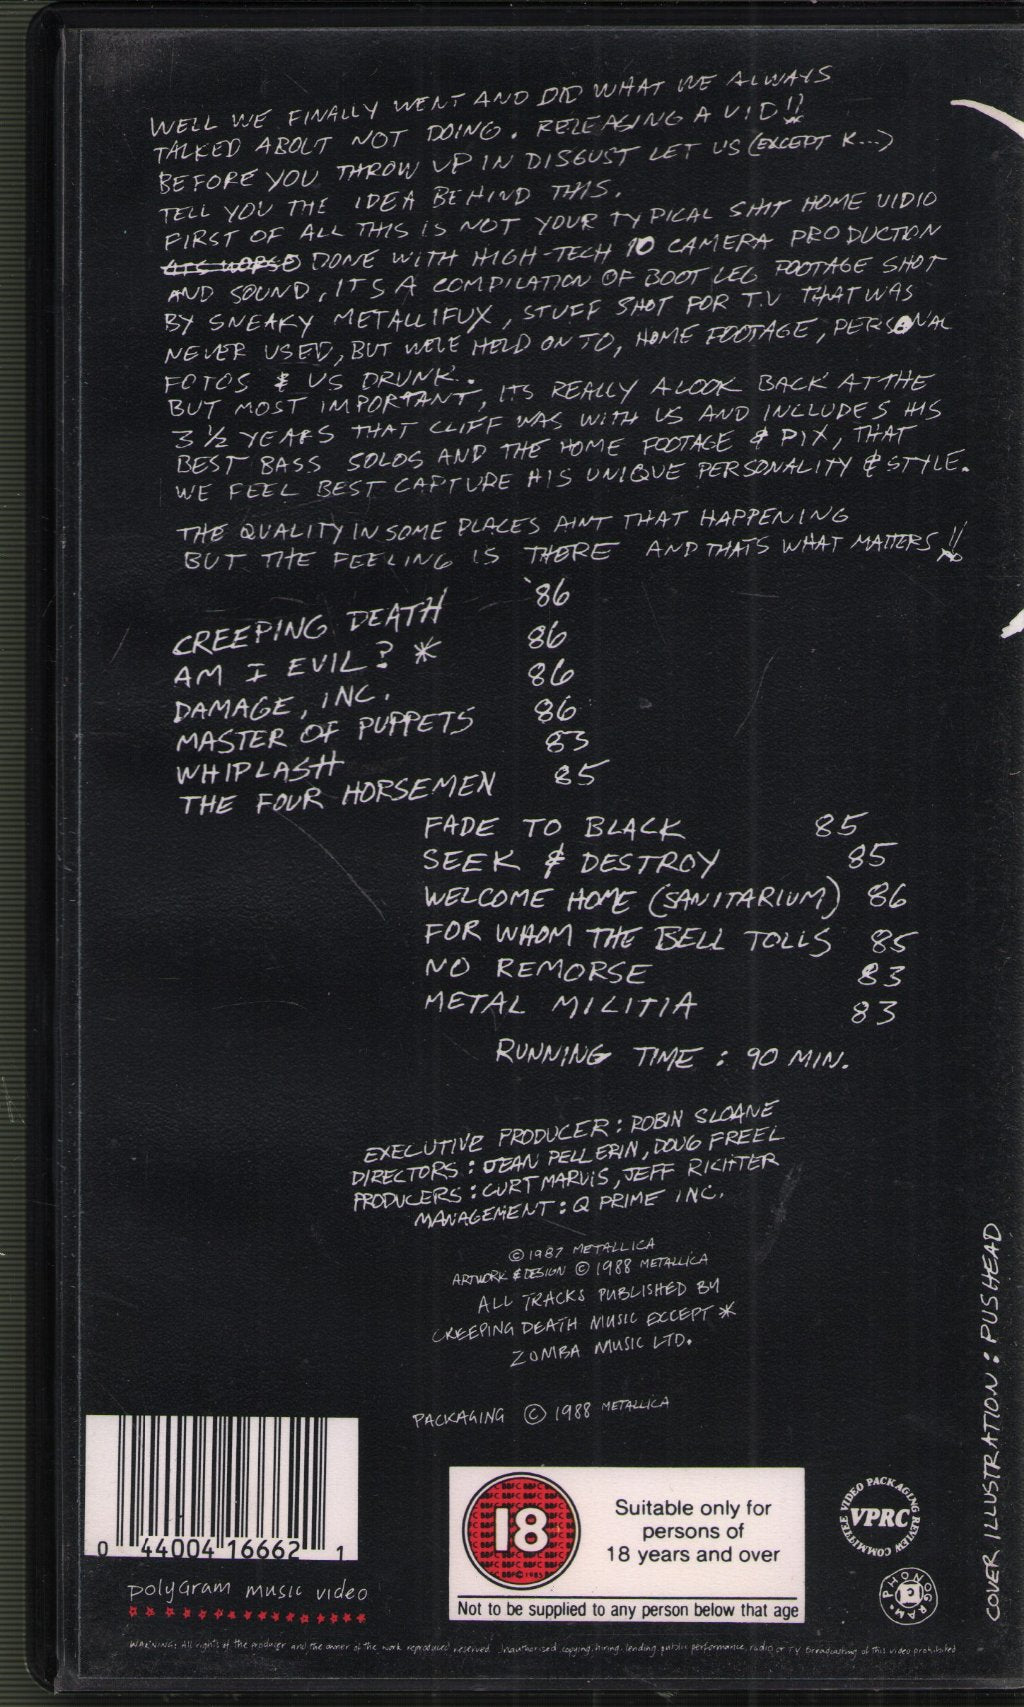 WELL WE FINALLY WENT AND DID WHAT WE ALWAYS
TALKED ABOUT NOT DOING. RELEASING A VID!!
BEFORE YOU THROW UP IN DISGUST LET US (EXCEPT K...)
TELL YOU THE IDEA BEHIND THIS.
FIRST OF ALL THIS IS NOT YOUR TYPICAL SHIT HOME VIDIO
DONE WITH HIGH-TECH 10 CAMERA PRODUCTION
AND SOUND, ITS A COMPILATION OF BOOT LEG FOOTAGE SHOT
BY SNEAKY METALLIFUX, STUFF SHOT FOR T.V THAT WAS
NEVER USED, BUT WEVE HELD ON TO, HOME FOOTAGE, PERSONAL
FOTOS & US DRUNK.
BUT MOST IMPORTANT, ITS REALLY A LOOK BACK AT THE
3 ½ YEARS THAT CLIFF WAS WITH US AND INCLUDES HIS
BEST BASS SOLOS AND THE HOME FOOTAGE & PIX, THAT
WE FEEL BEST CAPTURE HIS UNIQUE PERSONALITY & STYLE.
THE QUALITY IN SOME PLACES AINT THAT HAPPENING
BUT THE FEELING IS THERE AND THATS WHAT MATTERS!!
CREEPING DEATH '86
AM I EVIL? * 86
DAMAGE, INC. 86
MASTER OF PUPPETS 86
WHIPLASH 83
THE FOUR HORSEMEN 85
FADE TO BLACK 85
SEEK & DESTROY 85
WELCOME HOME (SANITARIUM) 86
FOR WHOM THE BELL TOLLS 85
NO REMORSE 83
METAL MILITIA 83
RUNNING TIME : 90 MIN.
EXECUTIVE PRODUCER : ROBIN SLOANE
DIRECTORS : JEAN PELLERIN, DOUG FREEL
PRODUCERS : CURT MARVIS, JEFF RICHTER
MANAGEMENT : Q PRIME INC.
© 1987 METALLICA
ARTWORK & DESIGN © 1988 METALLICA
ALL TRACKS PUBLISHED BY
CREEPING DEATH MUSIC EXCEPT *
ZOMBA MUSIC LTD.
PACKAGING © 1988 METALLICA
COVER ILLUSTRATION : PUSHEAD
0 44004 16662 1
polyGram music video
18
BBFC © 1985
Suitable only for
persons of
18 years and over
Not to be supplied to any person below that age
VIDEO PACKAGING REVIEW COMMITTEE
VPRC
PHONOGRAM
WARNING: All rights of the producer and the owner of the work reproduced reserved. Unauthorised copying, hiring, lending, public performance, radio or T.V. broadcasting of this video prohibited